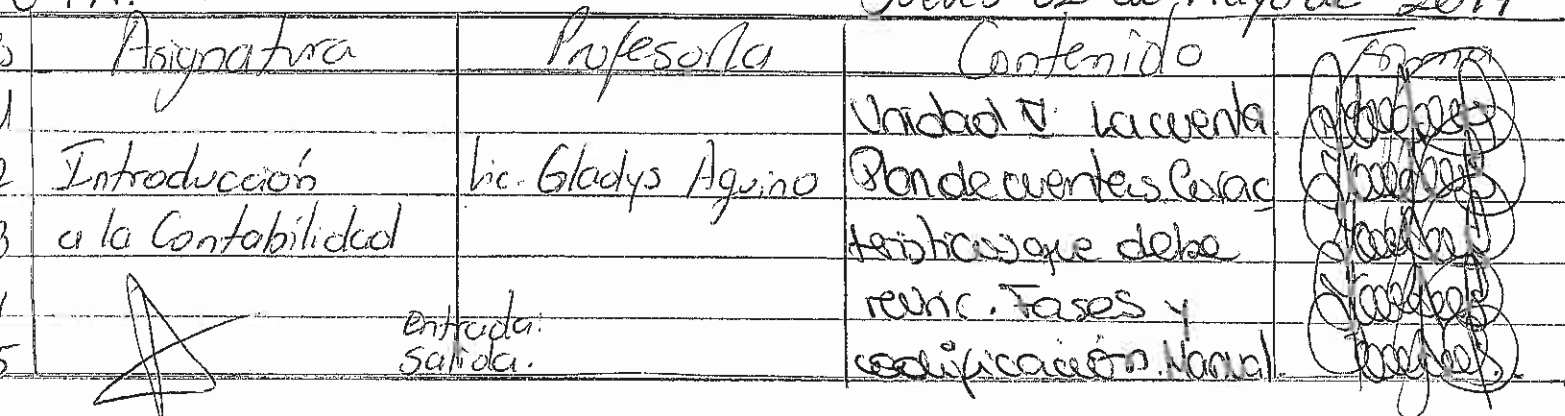 Jueves 02 de Mayo de 2019
Asignatura Profesor/a Contenido Firma
1 Unidad V: La cuenta
2 Introducción Lic. Gladys Aquino Plan de cuentas Carac
3 a la Contabilidad terísticas que debe
4 entrada: reunir. Fases y
5 salida. codificación. Manual.